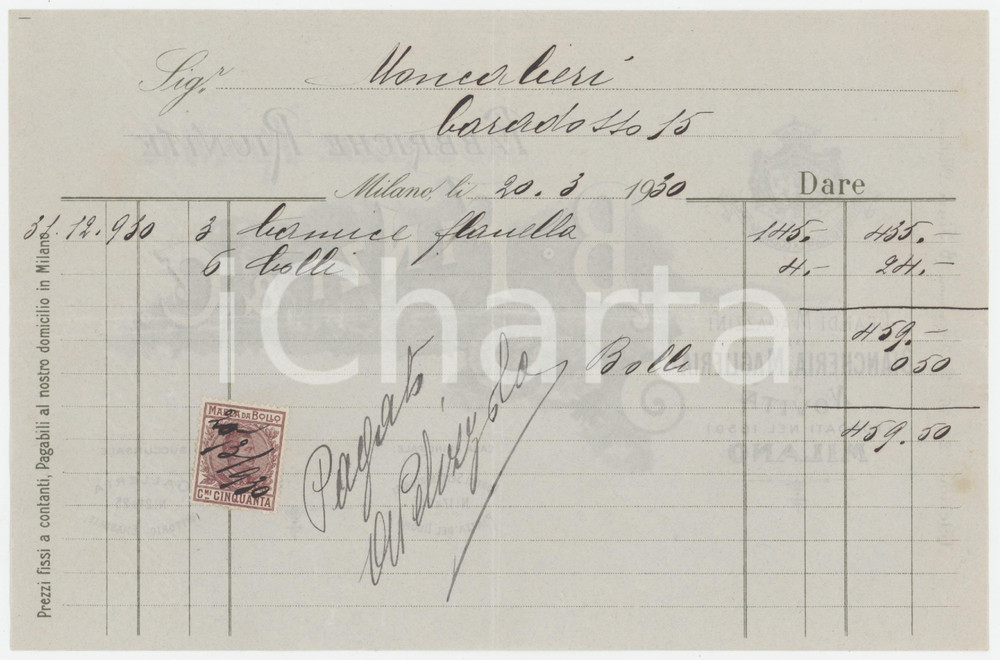 Sigr. Moncalieri
Caradosso 15
Milano, li 20.3 1930 Dare
31.12.930 3 Camice flanella 145.- 435.-
6 Colli 4.- 24.-
459.-
Bollo 0 50
459.50
Pagato
MARCA DA BOLLO
CMI CINQUANTA
Prezzi fissi a contanti, Pagabili al nostro domicilio in Milano
iCharta
FABBRICHE RIUNITE
MILANO